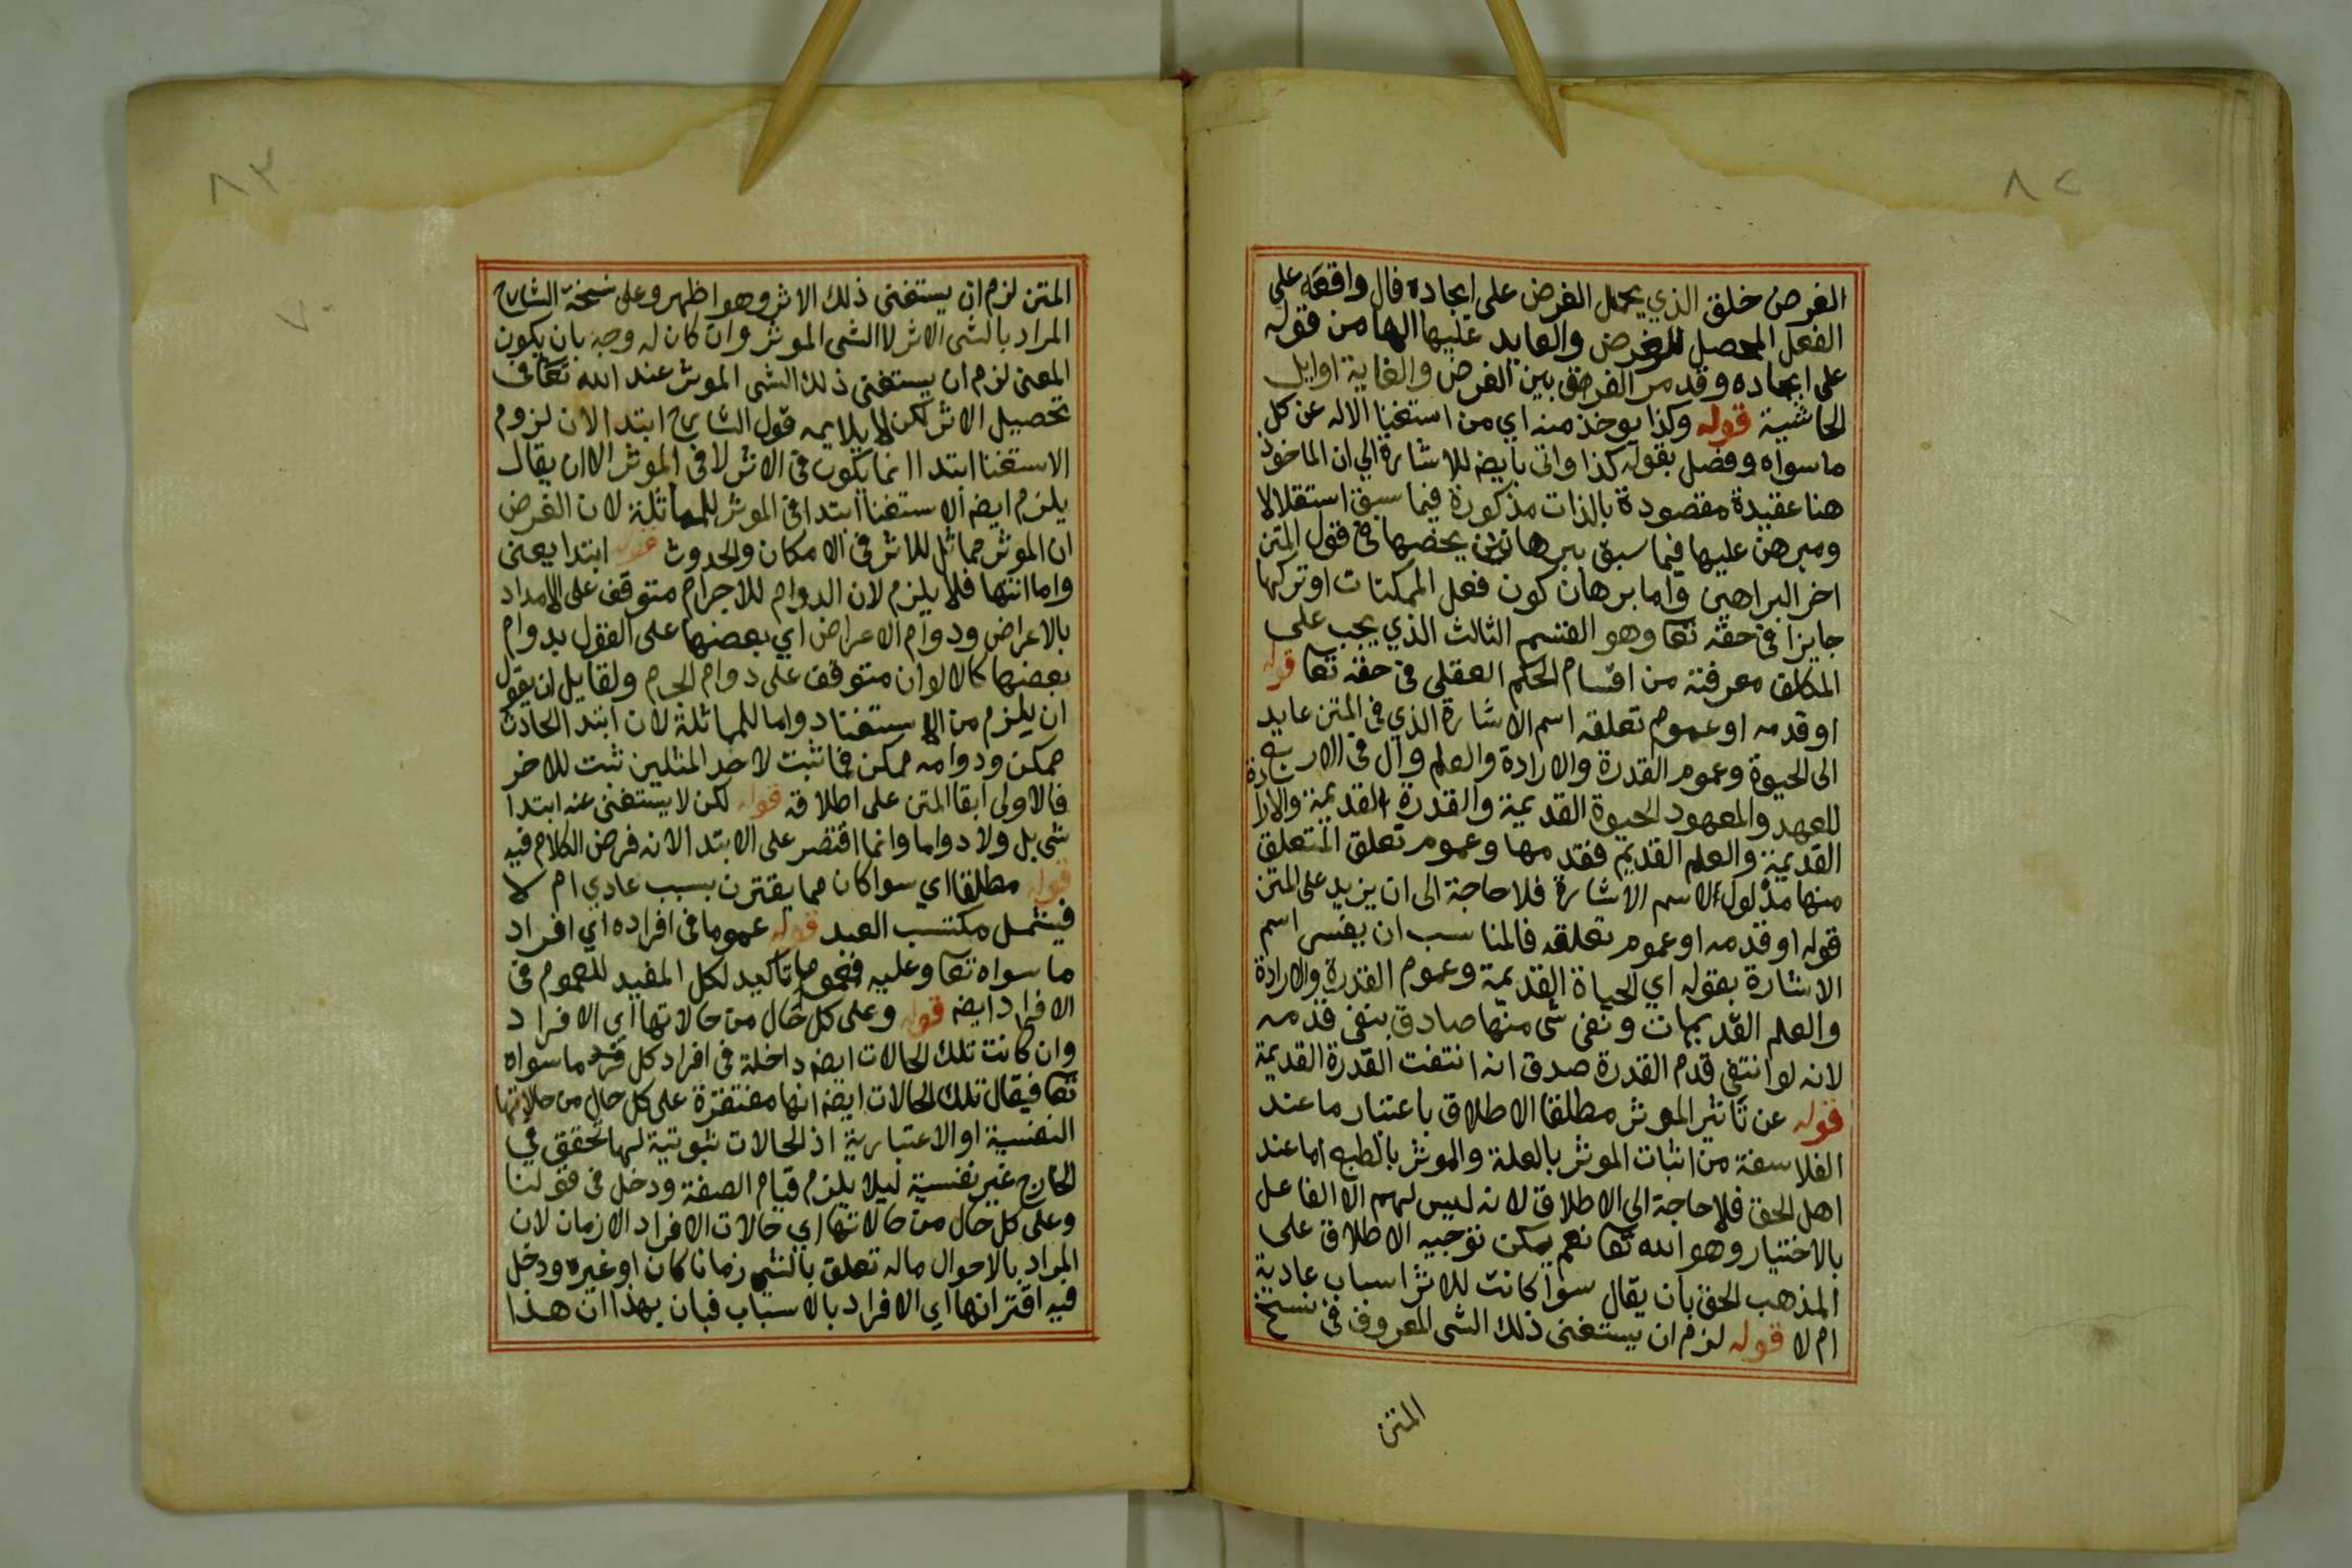 ٨٢
الغرض خلق الذي يحمل الغرض على ايجاده فال واقعة على
الفعل المحصل للغرض والعايد عليها الها من قوله
على ايجاده وقد مر الفرق بين الغرض والغاية اوايل
الحاشية قوله وكذا يوخذ منه اي من استغنا الاله عن كل
ما سواه وفصل بقوله كذا واتى بايضه للاشارة الي ان الماخوذ
هنا عقيدة مقصودة بالذات مذكورة فيما سبق استقلالا
ومبرهن عليها فيما سبق ببرهان يخصها في قول المتن
اخر البراهين واما برهان كون فعل الممكنات او تركها
جايزا في حقه تعا وهو القسم الثالث الذي يجب على
المكلف معرفته من اقسام الحكم العقلي في حقه تعا قوله
او قدمه او عموم تعلقه اسم الاشارة الذي في المتن عايد
الى الحيوة وعموم القدرة والارادة والعلم وال في الاربع
للعهد والمعهود الحيوة القديمة والقدرة القديمة والارادة
القديمة والعلم القديم فقدمها وعموم تعلق المتعلق
منها مدلول الاسم الاشارة فلا حاجة الى ان يزيد على المتن
قوله او قدمه او عموم تعلقه فالمناسب ان يفسر اسم
الاشارة بقوله اي الحياة القديمة وعموم القدرة والارادة
والعلم القديمات ونفى شى منها صادق بنفى قدمه
لانه لو انتفى قدم القدرة صدق انه انتفت القدرة القديمة
قوله عن تاثير الموثر مطلقا الاطلاق باعتبار ما عند
الفلاسفة من اثبات الموثر بالعلة والموثر بالطبع اما عند
اهل الحق فلا حاجة الى الاطلاق لانه ليس لهم الا الفاعل
بالاختيار وهو الله تعا نعم يمكن توجيه الاطلاق على
المذهب الحق بان يقال سوا كانت للاثر اسباب عادية
ام لا قوله لزم ان يستغنى ذلك الشى المعروف في نسخ
المتن
٨٣
المتن لزم ان يستغنى ذلك الاثر وهو اظهر وعلى نسخة الشارح
المراد بالشى الاثر لا الشى الموثر وان كان له وجه بان يكون
المعنى لزم ان يستغنى ذلك الشى الموثر عند الله تعا في
تحصيل الاثر لكن لا يلايمه قول الشارح ابتدا لان لزوم
الاستغنا ابتدا انما يكون في الاثر لا في الموثر الا ان يقال
يلزم ايضه الاستغنا ابتدا في الموثر للمماثلة لان الغرض
ان الموثر مماثل للاثر في الامكان والحدوث قوله ابتدا يعنى
واما انتها فلا يلزم لان الدوام للاجرام متوقف على الامداد
بالاعراض ودوام الاعراض اي بعضها على القول بدوام
بعضها كالالوان متوقف على دوام الجرم ولقايل ان يقول
ان يلزم من الاستغنا دواما للمماثلة لان ابتدا الحادث
ممكن ودوامه ممكن فما ثبت لاحد المثلين ثبت للاخر
فالاولى ابقا المتن على اطلاقه قوله لكن لا يستغنى عنه ابتدا
شى بل ولا دواما وانما اقتصر على الابتدا لانه فرض الكلام فيه
قوله مطلقا اي سوا كان مما يقترن بسبب عادي ام لا
فيشمل مكتسب العبد قوله عموما في افراده اي افراد
ما سواه تعا وعليه فعموما تاكيد لكل المفيد للعموم في
الافراد ايضه قوله وعلى كل حال من حالاتها اي الافراد
وان كانت تلك الحالات ايضه داخلة في افراد كل فرد ما سواه
تعا فيقال تلك الحالات ايضه انها مفتقرة على كل حال من حالاتها
النفسية او الاعتبارية اذ الحالات ثبوتية لها تحقق في
الخارج غير نفسية ليلا يلزم قيام الصفة ودخل في قولنا
وعلى كل حال من حالاتها اي حالات الافراد الازمان لان
المراد بالاحوال ماله تعلق بالشى زمانا كان او غيره ودخل
فيه اقترانها اي الافراد بالاسباب فبان بهذا ان هذا